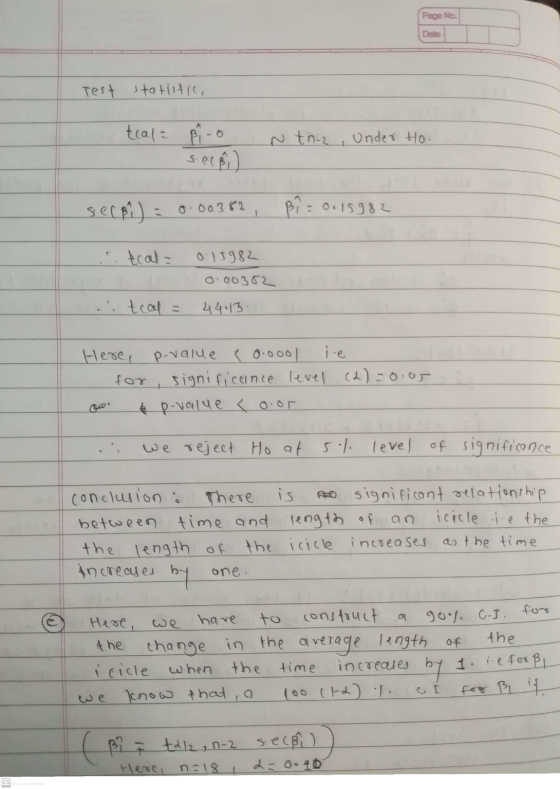 Page No.
Date
Test statistic,
tcal = β̂1 - 0 / s.e(β̂1) ~ tn-2, Under Ho.
se(β̂1) = 0.00362, β̂1 = 0.15982
∴ tcal = 0.15982 / 0.00362
∴ tcal = 44.13.
Here, p-value < 0.0001 i.e
for, significance level (α) = 0.05
p-value < 0.05
∴ we reject Ho at 5% level of significance
conclusion: There is significant relationship
between time and length of an icicle i.e the
the length of the icicle increases as the time
increases by one.
(E) Here, we have to construct a 90% C.I. for
the change in the average length of the
icicle when the time increases by 1. i.e for β1
we know that, a 100 (1-α) % CI for β1 if
(β̂1 ∓ tα/2, n-2 se(β̂1))
Here, n=18, α = 0.10